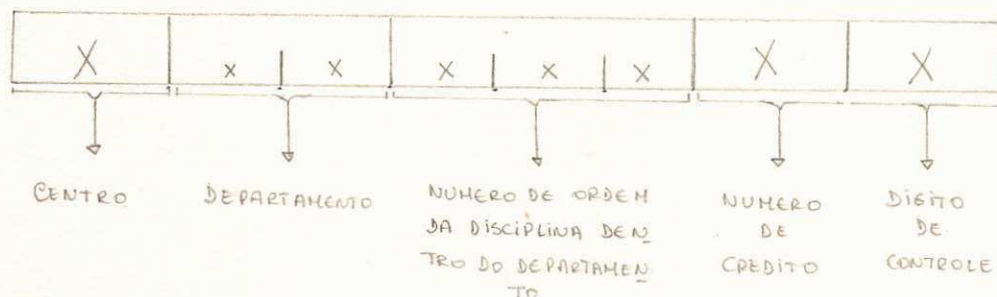 X x x x x x X X
CENTRO
DEPARTAMENTO
NUMERO DE ORDEM
DA DISCIPLINA DEN
TRO DO DEPARTAMEN
TO
NUMERO
DE
CREDITO
DIGITO
DE
CONTROLE